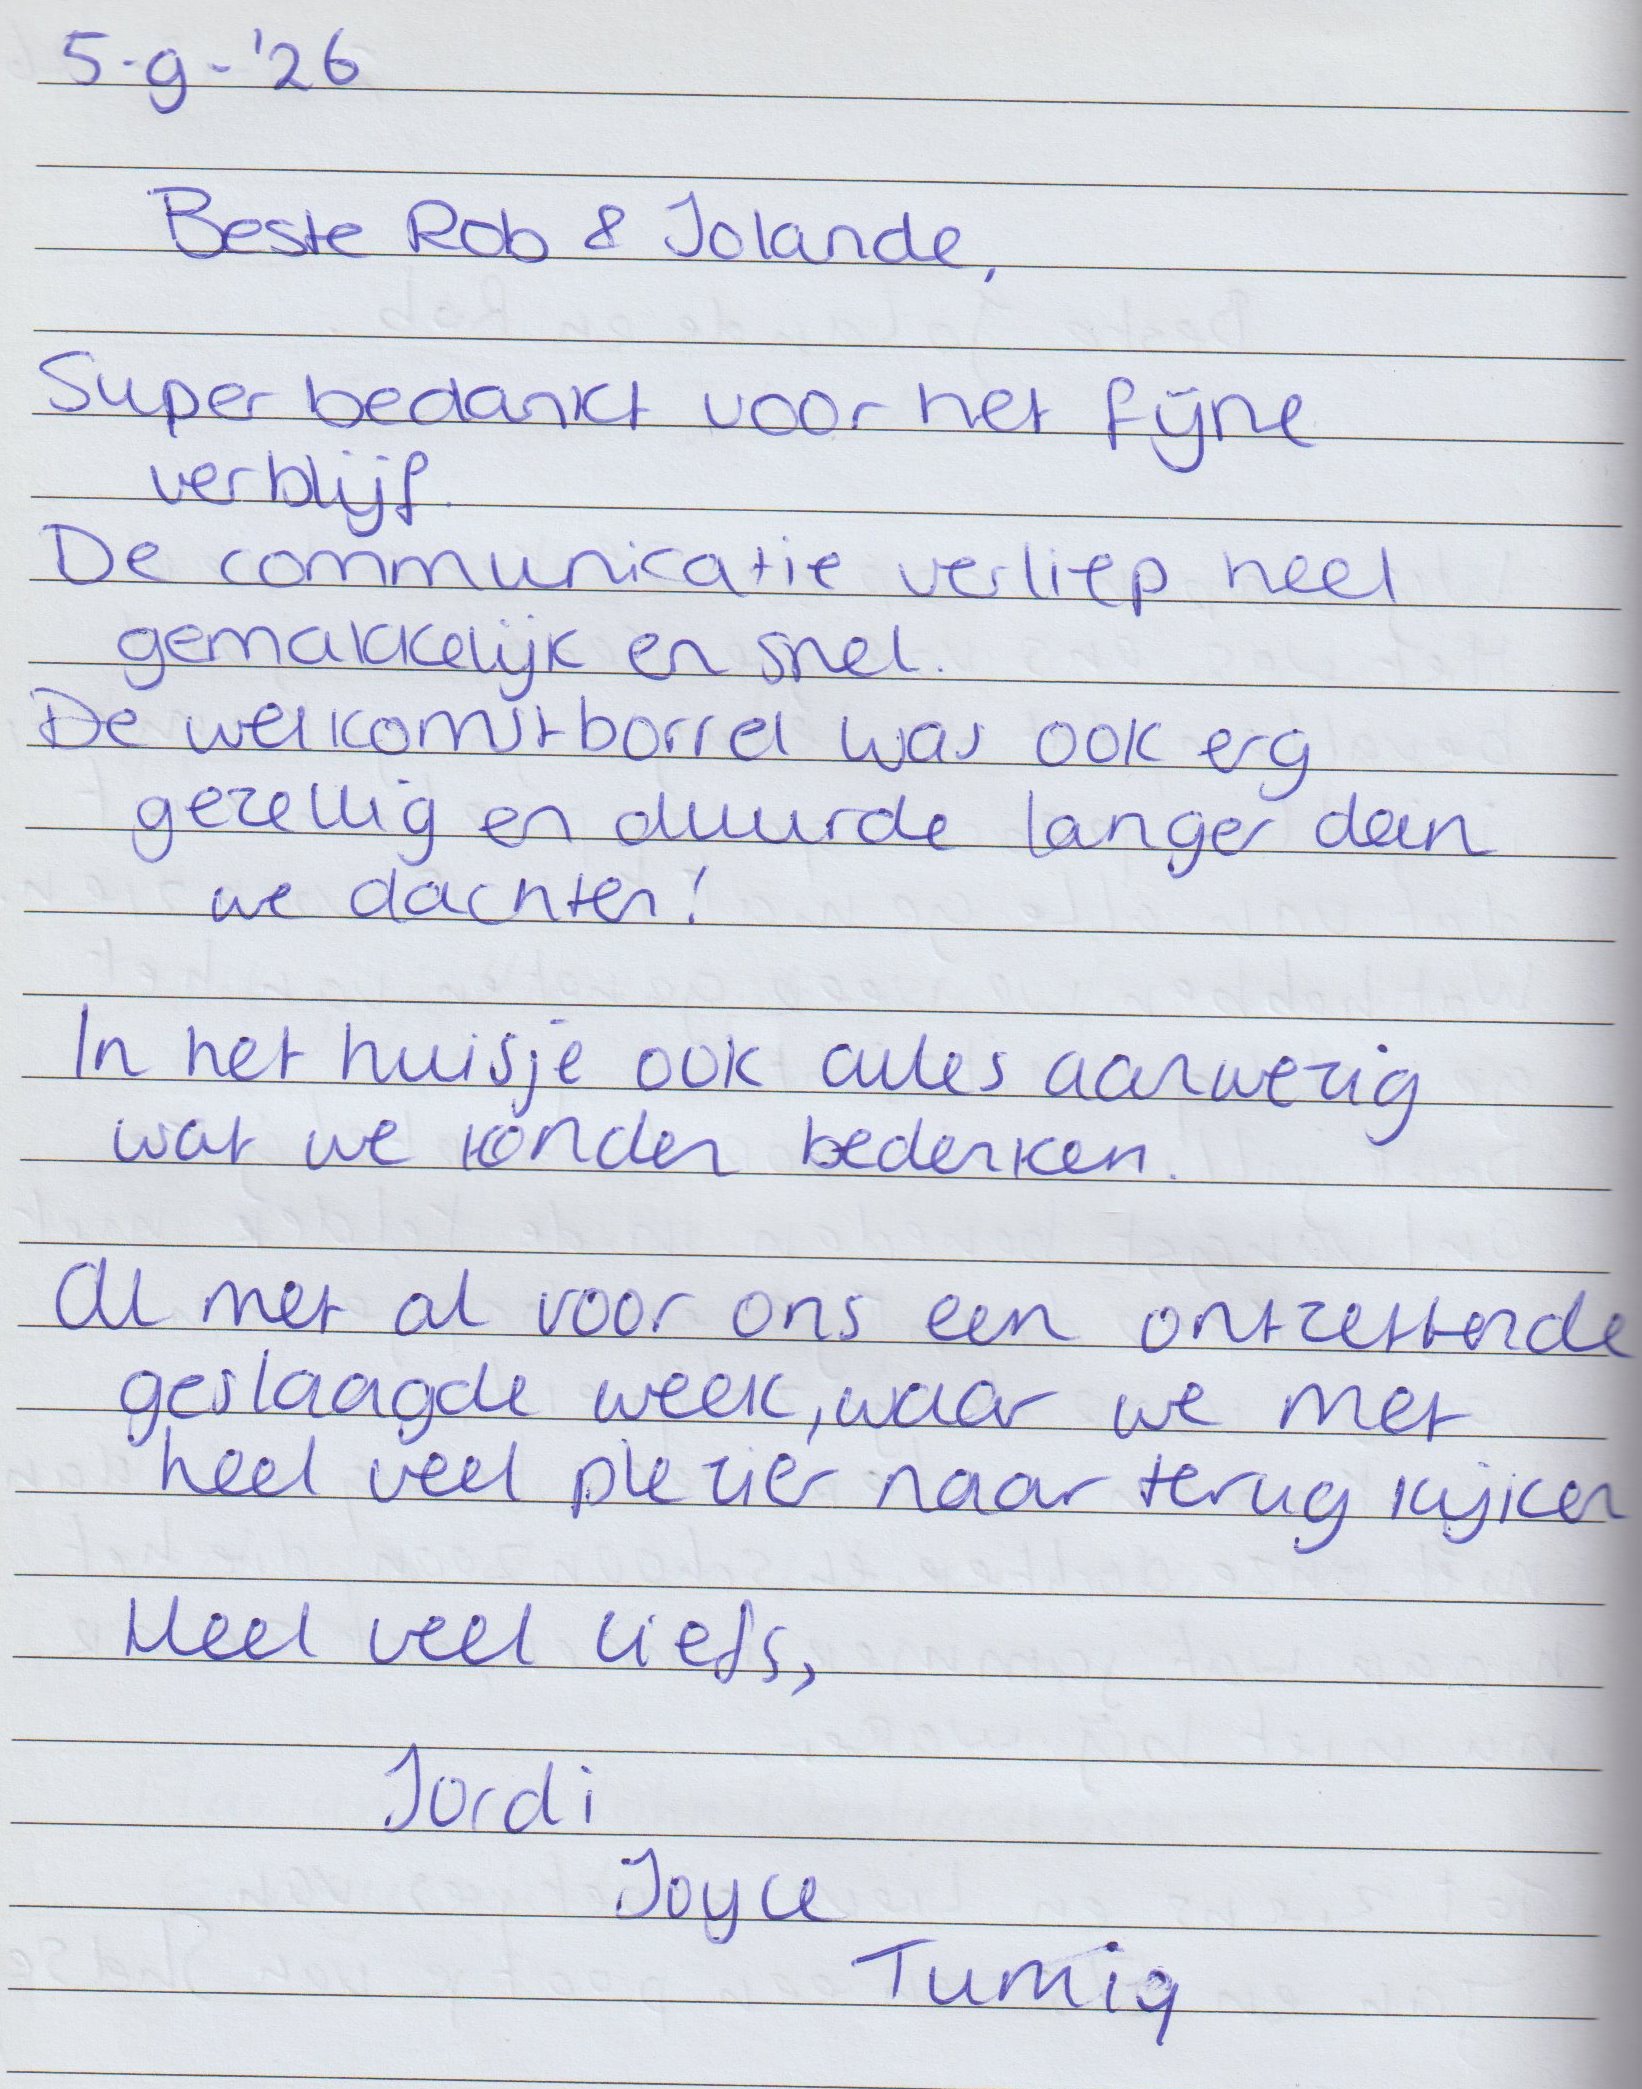 5-9-'26
Beste Rob & Jolande,
Super bedankt voor het fijne
verblijf.
De communicatie verliep heel
gemakkelijk en snel.
De welkomstborrel was ook erg
gezellig en duurde langer dan
we dachten!
In het huisje ook alles aanwezig
wat we konden bedenken.
Al met al voor ons een ontzettende
geslaagde week, waar we met
heel veel plezier naar terug kijken
Heel veel liefs,
Jordi
Joyce